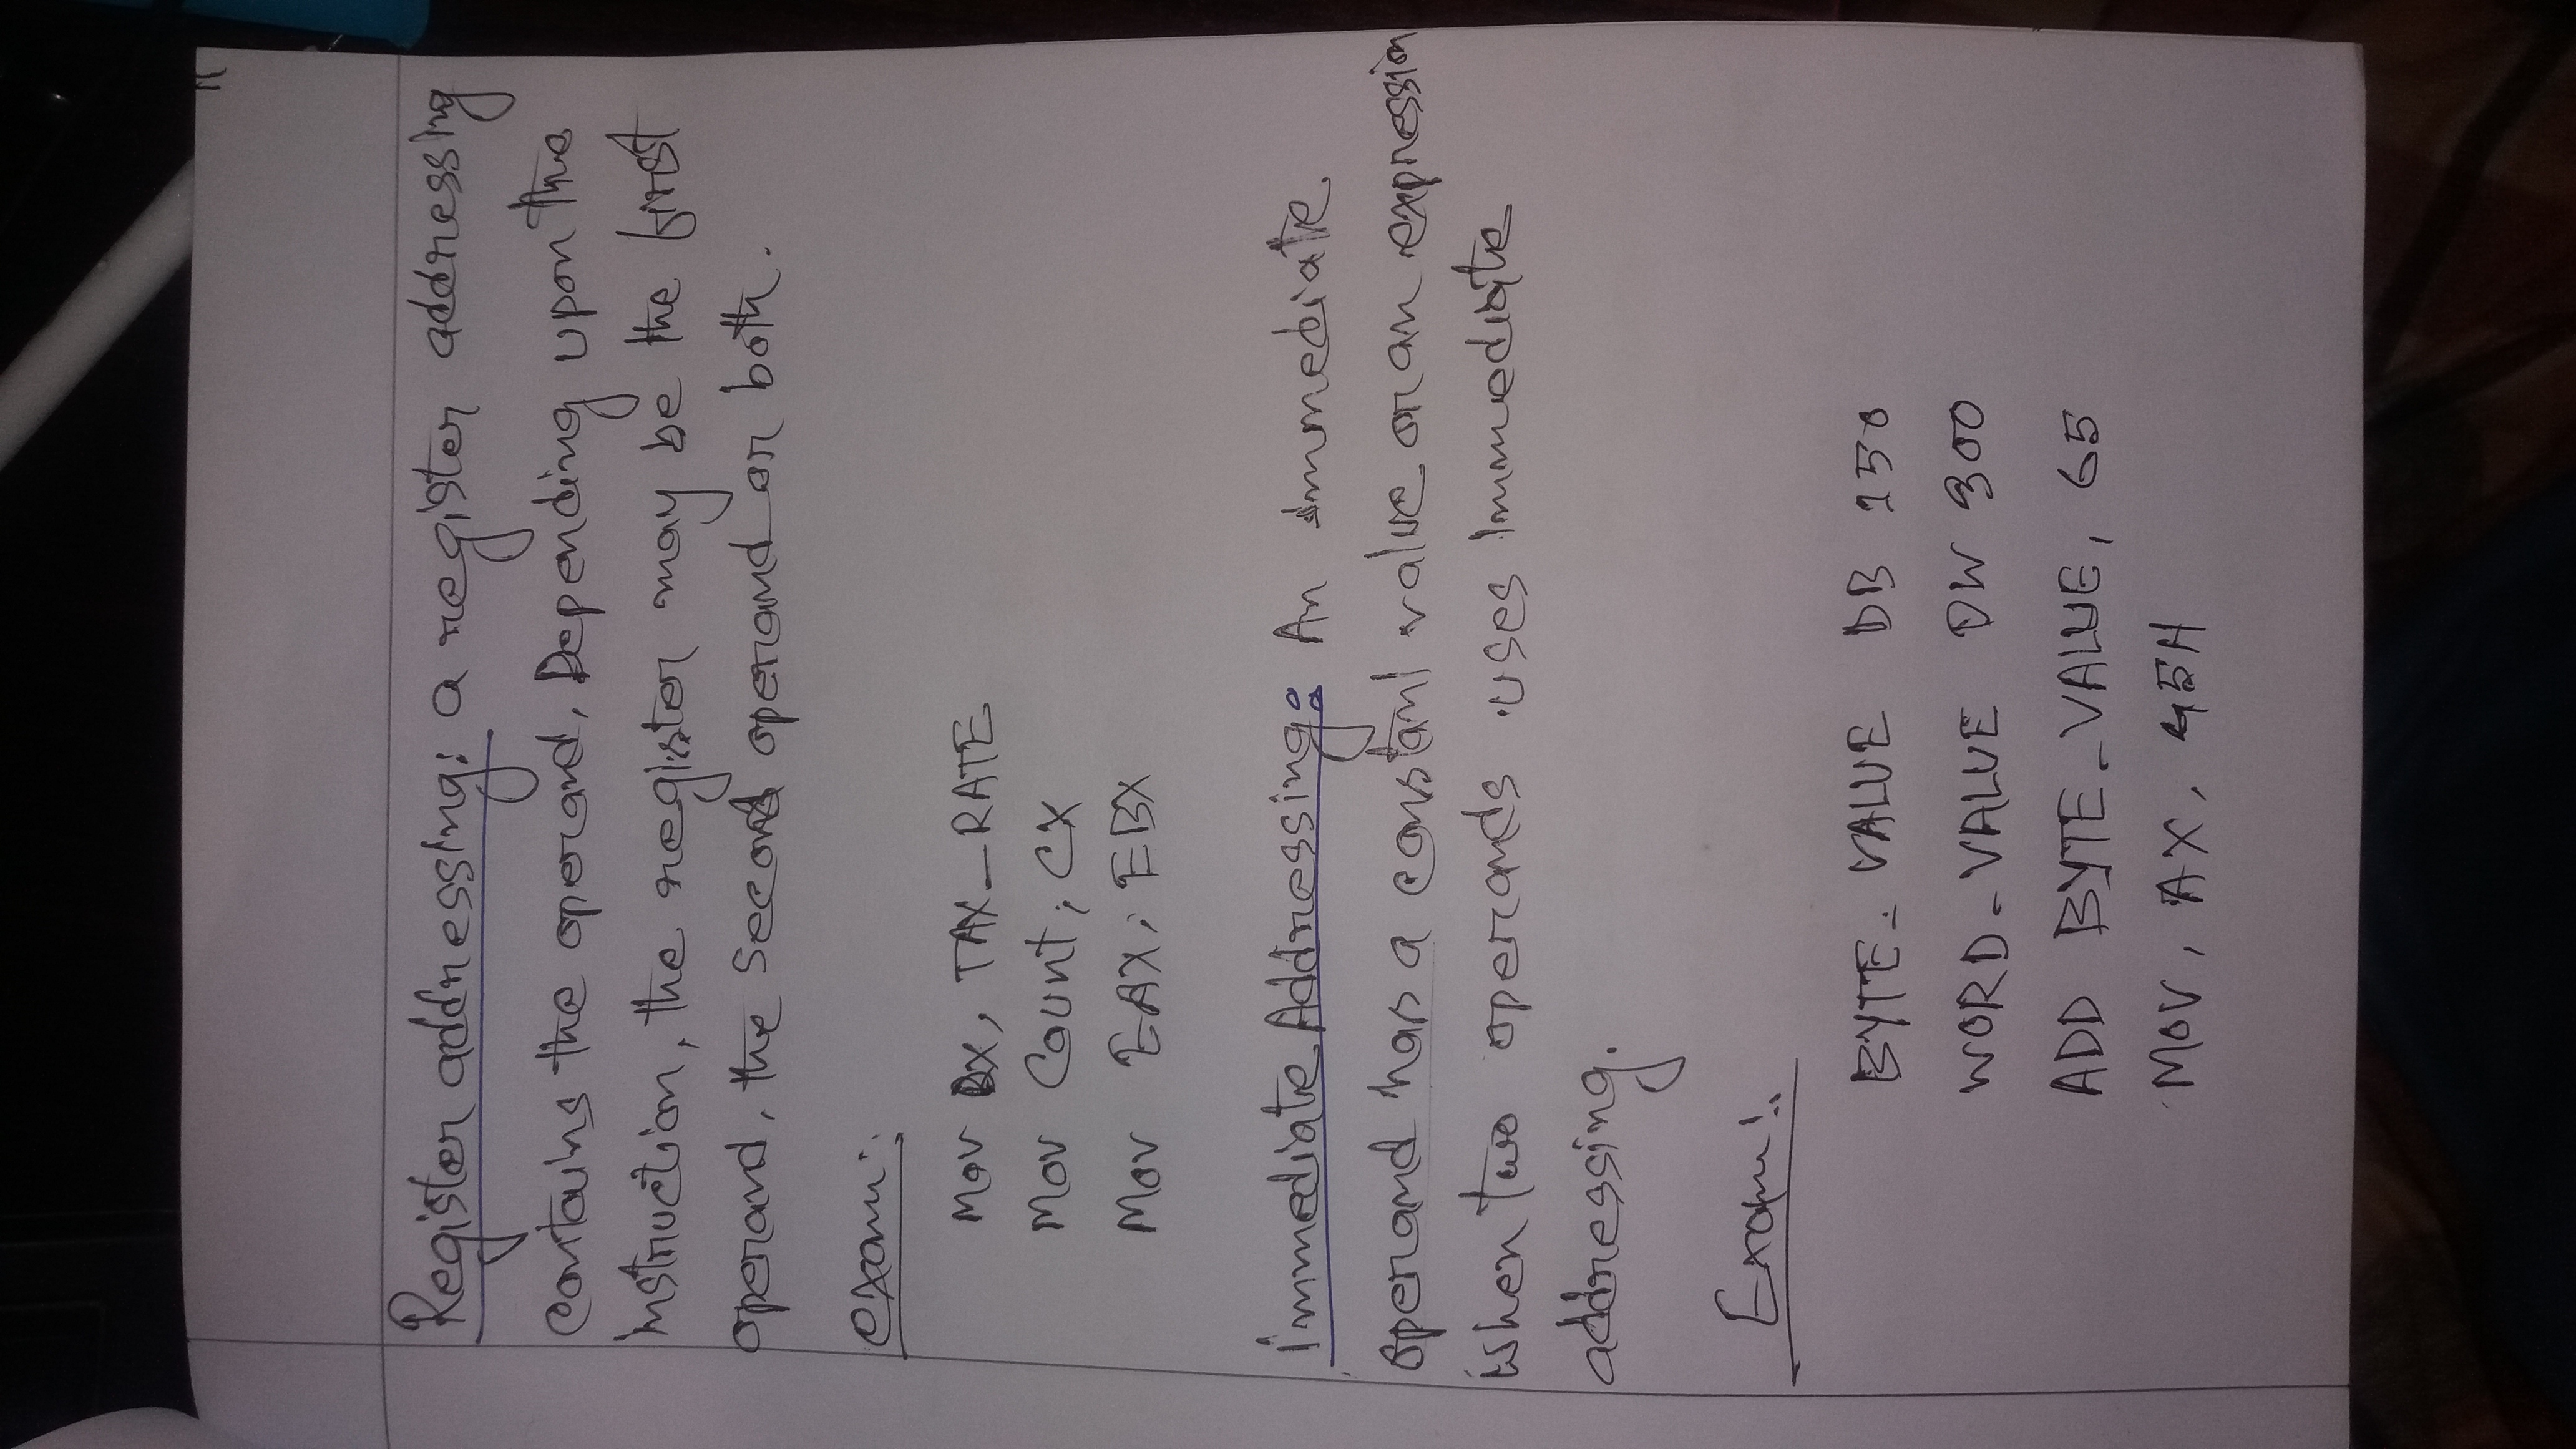 Register addressing: a register addressing
contains the operand, Depending upon the
instruction, the register may be the first
operand, the second operand or both.
exam:
Mov DX, TAX_RATE
Mov Count, CX
Mov EAX, EBX
Immediate Addressing: An immediate
operand has a constant value or an expression
when two operands uses immediate
addressing.
Exam:
BYTE_VALUE DB 150
WORD_VALUE DW 300
ADD BYTE_VALUE, 65
MOV, AX, 45H